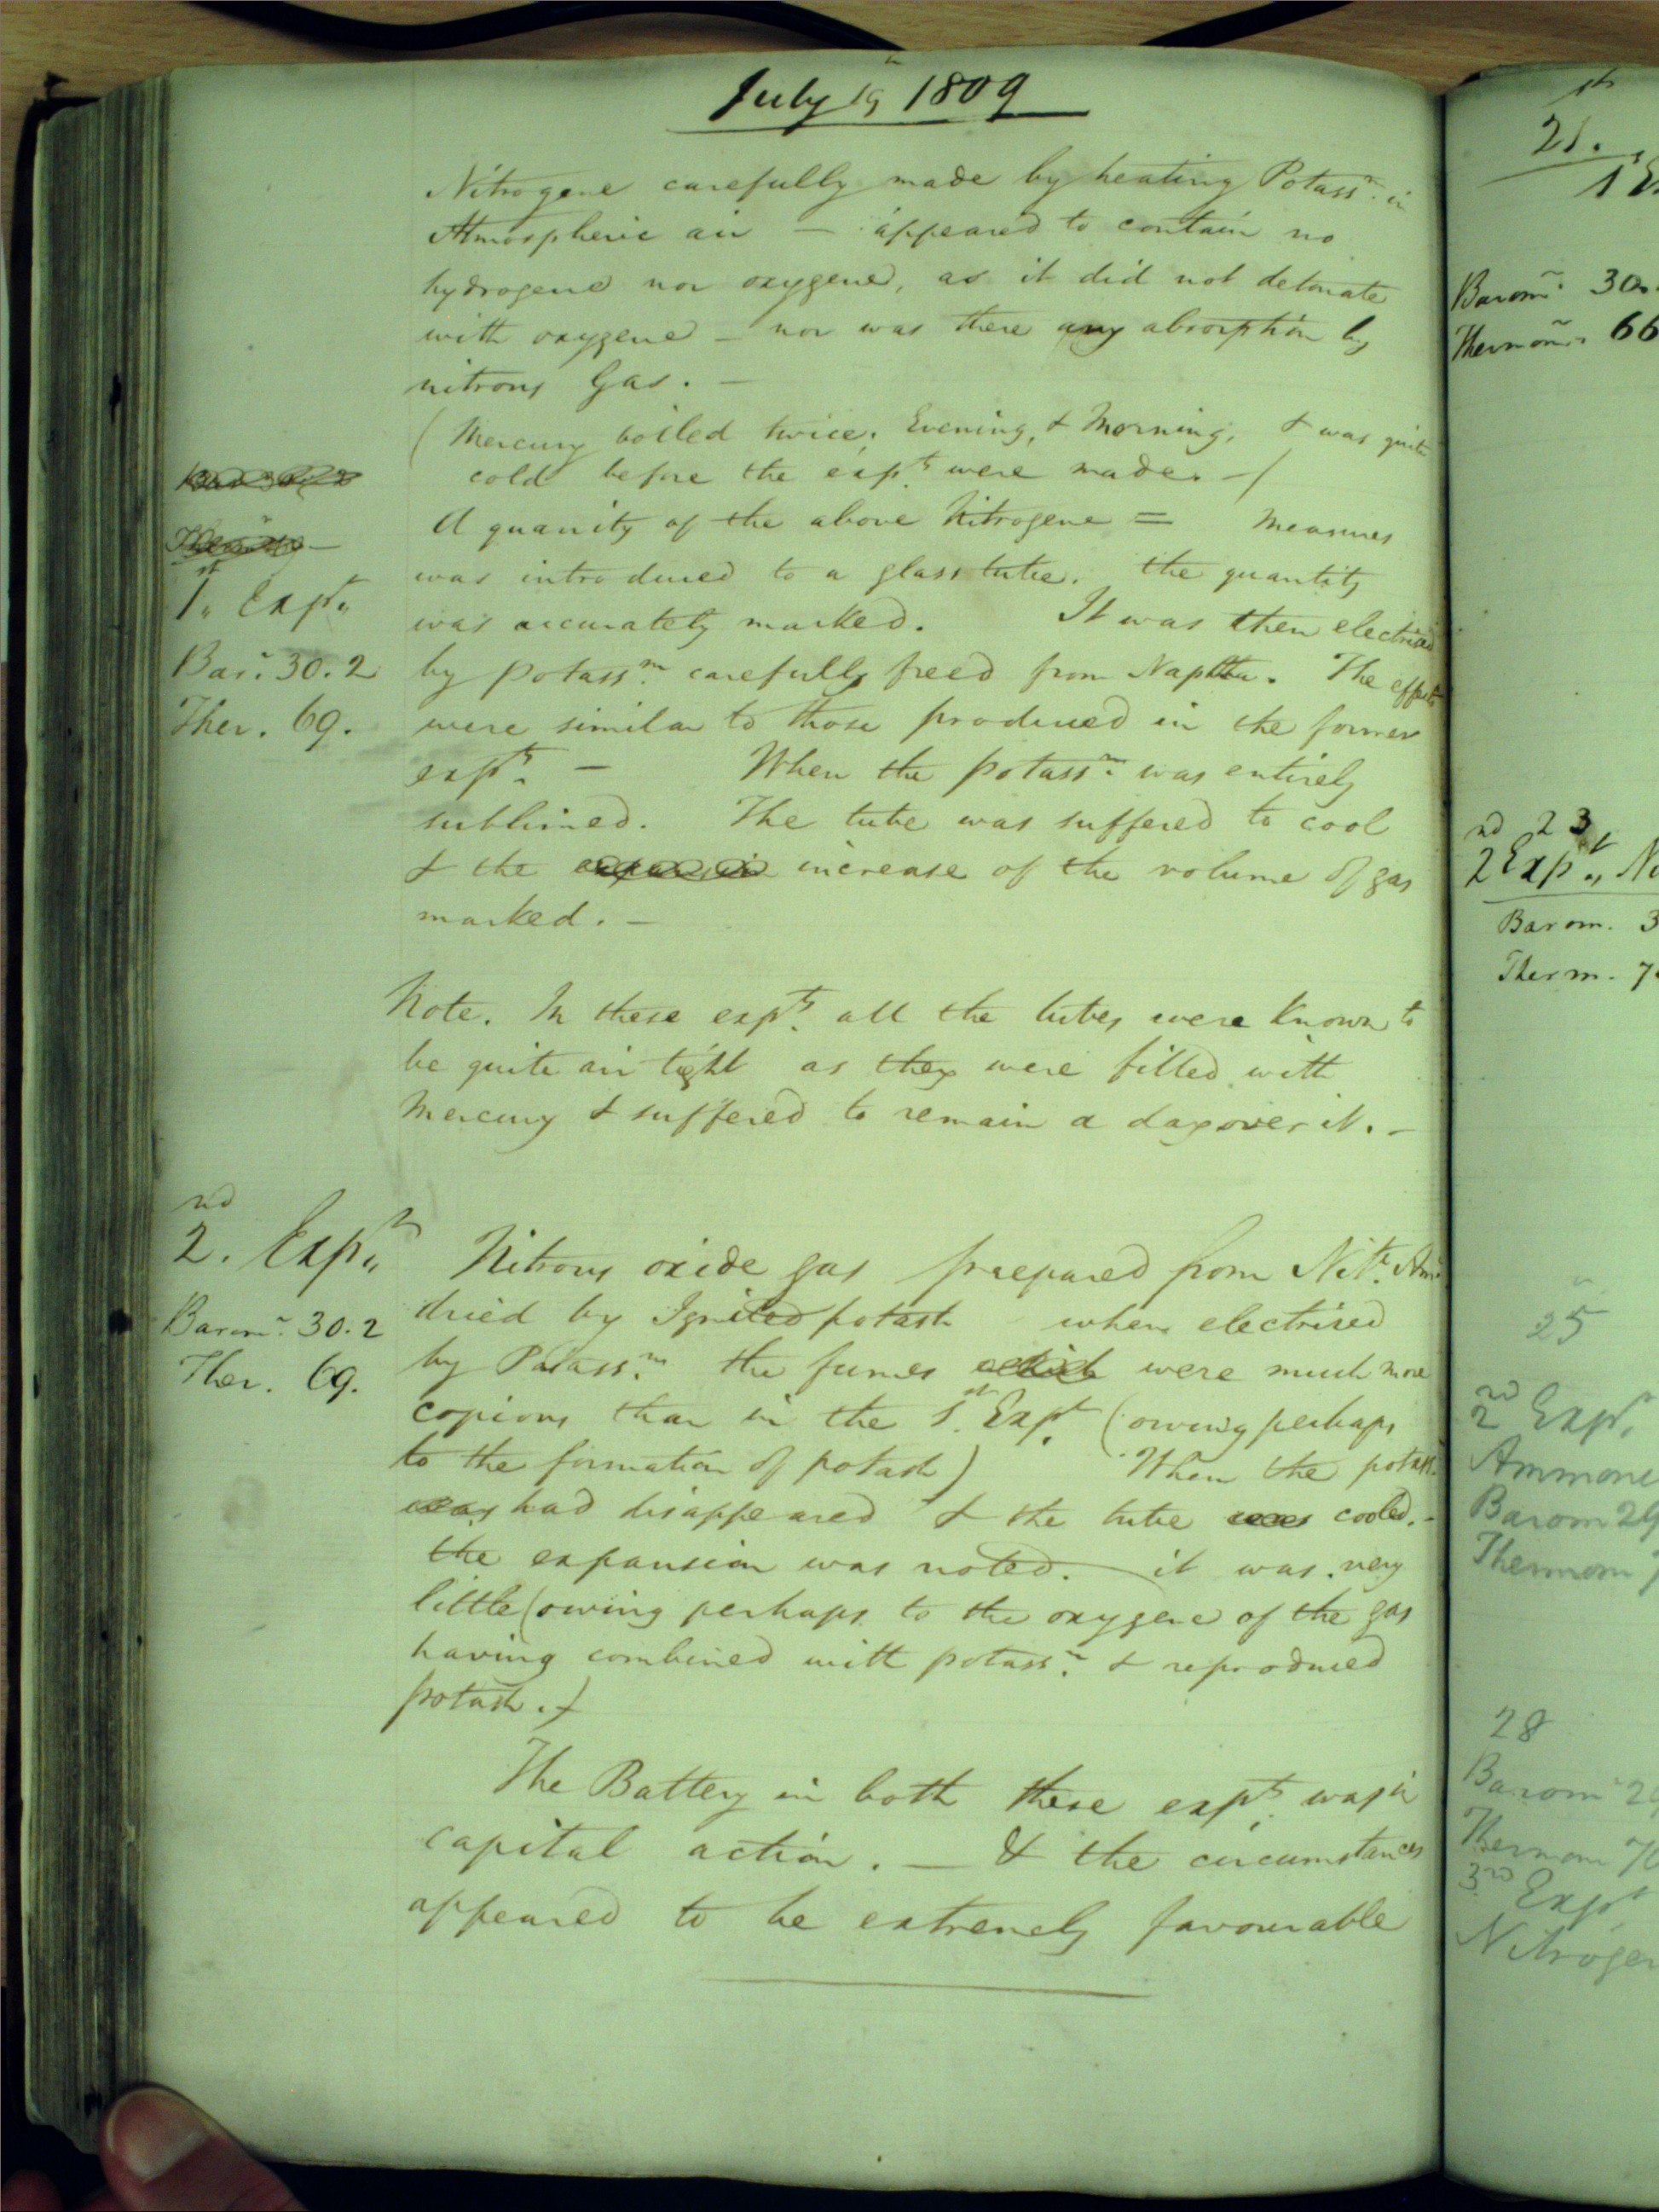 July 19th 1809
Nitrogene carefully made by heating Potassm. in
Atmospheric air — appeared to contain no
hydrogene nor oxygene, as it did not detonate
with oxygene — nor was there any absorption by
nitrous Gas. —
(Mercury boiled twice, Evening, & Morning, & was quite
cold before the expts. were made. —)
A quanity of the above Nitrogene = Measures
was introduced to a glass tube. the quantity
1st. Expt.
was accurately marked. It was then electrised
Bar. 30.2
by potassm. carefully freed from Naptha. The effects
Ther. 69.
were similar to those produced in the former
expts. — When the potassm. was entirely
sublimed. The tube was suffered to cool
& the expansion increase of the volume of gas
marked. —
Note. In these expts. all the tubes were known to
be quite air tight as they were filled with
Mercury & suffered to remain a day over it. —
2nd. Expt.
Nitrous oxide gas prepared from Nite. Am.
Barom. 30.2
dried by Ignited potash when electrised
Ther. 69.
by Potassm. the fumes which were much more
copious than in the 1st. Expt. (owing perhaps
to the formation of potash) When the potass.
was had disappeared & the tube was cooled. —
the expansion was noted. — it was very
little (owing perhaps to the oxygene of the gas
having combined with potassm. & reproduced
potash.)
The Battery in both these expts. was in
capital action. — & the circumstances
appeared to be extremely favourable
21.st
1 E
Barom. 30.
Thermom. 66
23
2nd Expt. N
Barom. 3
Therm. 7
25
2nd Expt.
Ammone
Barom 29
Thermom 7
28
Barom 29
Thermom 70
3rd Expt
Nitrogen